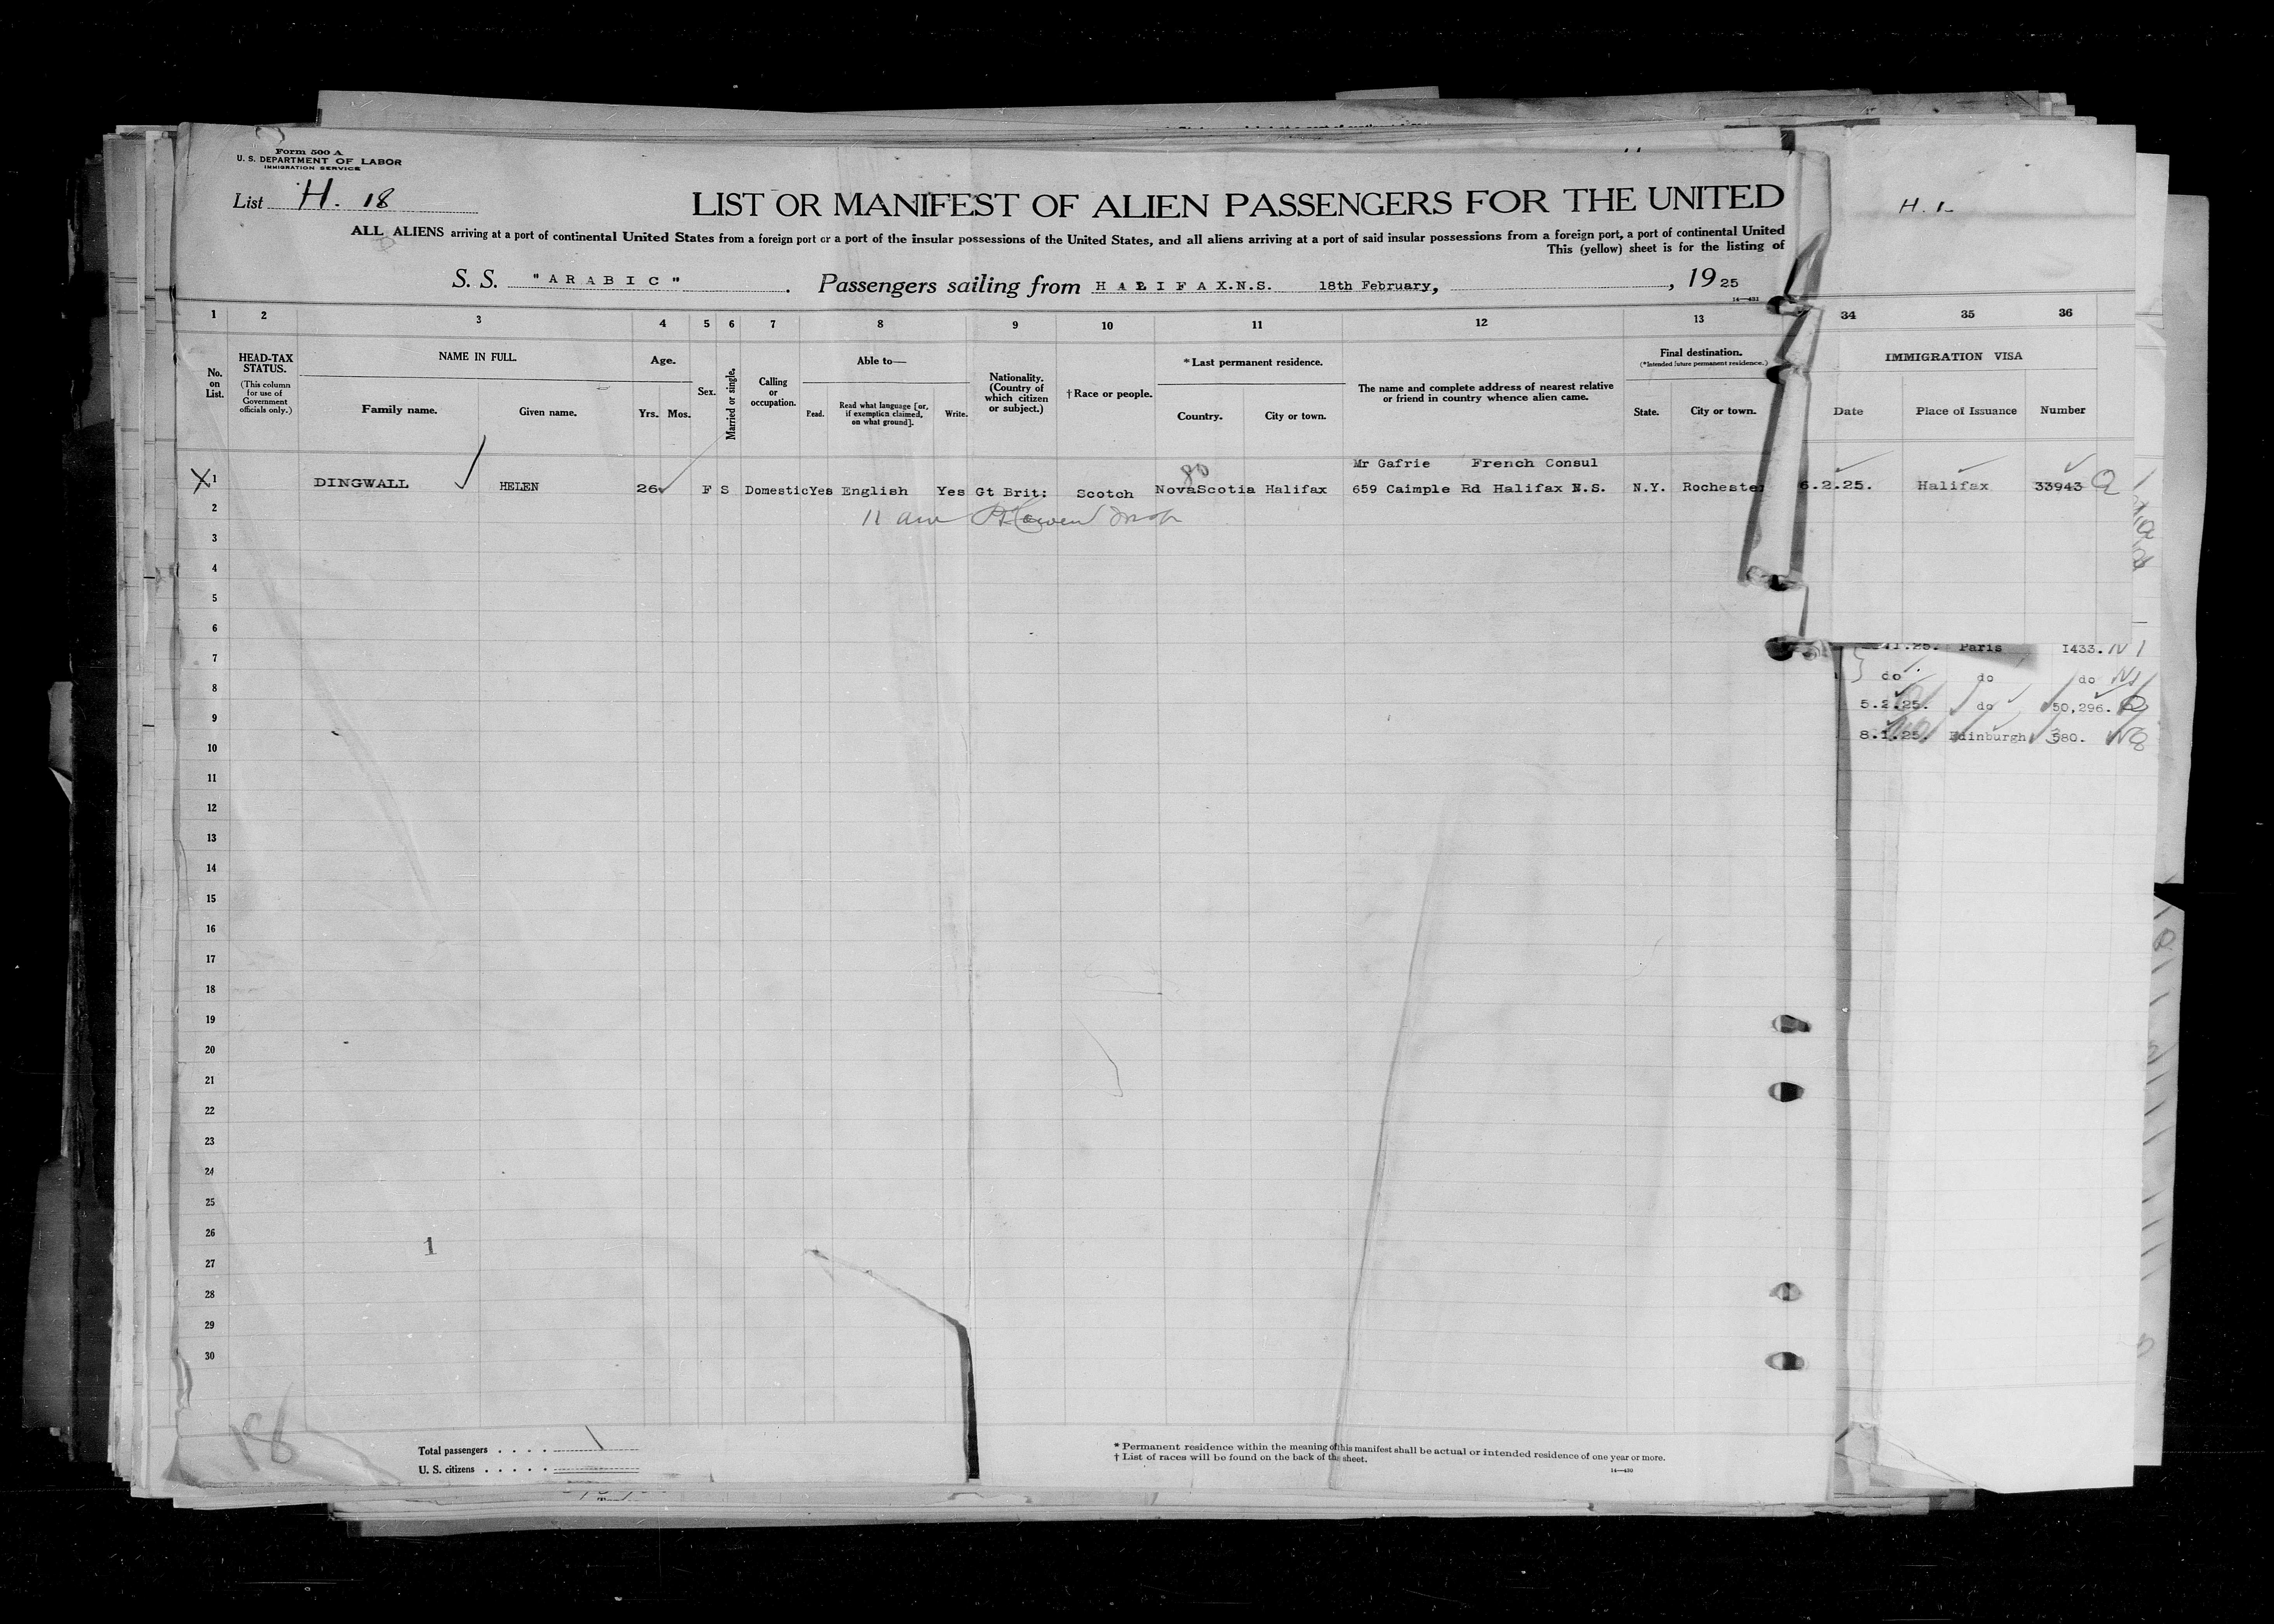 Form 500 A
U. S. DEPARTMENT OF LABOR
IMMIGRATION SERVICE
List H. 18
LIST OR MANIFEST OF ALIEN PASSENGERS FOR THE UNITED
H. 1-
ALL ALIENS arriving at a port of continental United States from a foreign port or a port of the insular possessions of the United States, and all aliens arriving at a port of said insular possessions from a foreign port, a port of continental United
This (yellow) sheet is for the listing of
S. S. "ARABIC". Passengers sailing from HALIFAX.N.S. 18th February, , 1925
14—431
1 2 3 4 5 6 7 8 9 10 11 12 13 34 35 36
No. on List.
HEAD-TAX STATUS.
(This column for use of Government officials only.)
NAME IN FULL.
Family name. Given name.
Age.
Yrs. Mos.
Sex.
Married or single.
Calling or occupation.
Able to—
Read. Read what language [or, if exemption claimed, on what ground]. Write.
Nationality. (Country of which citizen or subject.)
† Race or people.
* Last permanent residence.
Country. City or town.
The name and complete address of nearest relative or friend in country whence alien came.
Final destination.
(*Intended future permanent residence.)
State. City or town.
IMMIGRATION VISA
Date Place of Issuance Number
80 Mr Gafrie French Consul
X 1 DINGWALL HELEN 26 F S Domestic Yes English Yes Gt Brit: Scotch NovaScotia Halifax 659 Caimple Rd Halifax N.S. N.Y. Rochester 6.2.25. Halifax 33943
2
11 am
3
4
5
6
7
8
9
10
11
12
13
14
15
16
17
18
19
20
21
22
23
24
25
26
1
27
28
29
30
Paris 1433.
do do do
5.2.25. do 50,296.
8.1.25. Edinburgh 380.
18
Total passengers . . . . 1
U. S. citizens . . . . .
* Permanent residence within the meaning of this manifest shall be actual or intended residence of one year or more.
† List of races will be found on the back of the sheet.
14—430